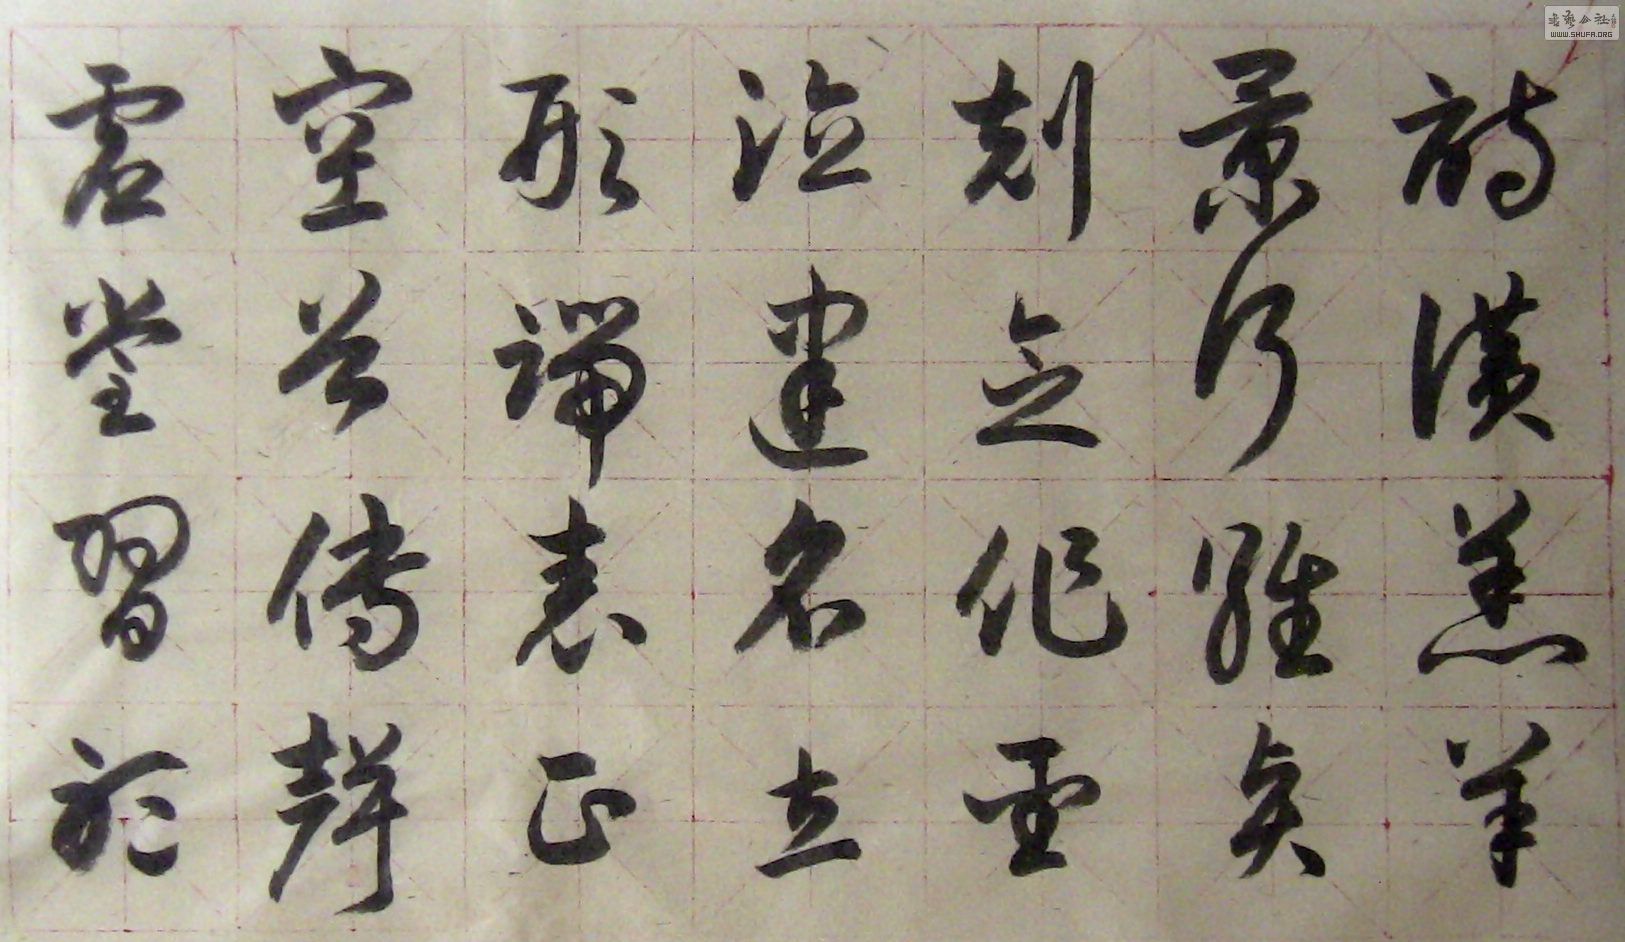 詩讚羔羊
景行維賢
剋念作聖
德建名立
形端表正
空谷傳聲
虛堂習聽
書藝公社
WWW.SHUFA.ORG